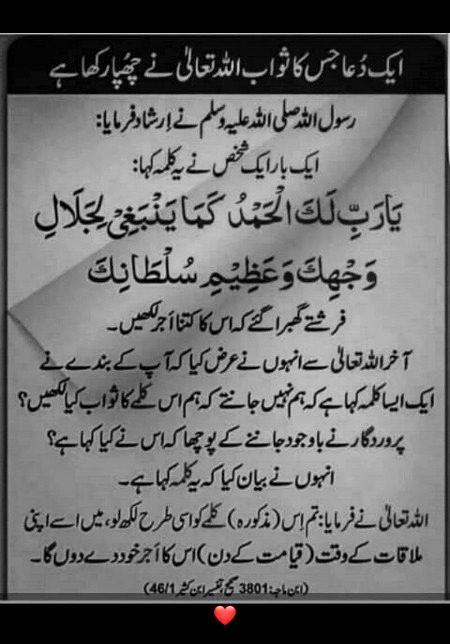 ایک دُعا جس کا ثواب اللہ تعالیٰ نے چھُپا رکھا ہے
رسول اللہ صلی اللہ علیہ وسلم نے ارشاد فرمایا:
ایک بار ایک شخص نے یہ کلمہ کہا:
يَا رَبِّ لَكَ الْحَمْدُ كَمَا يَنْبَغِيْ لِجَلَالِ
وَجْهِكَ وَعَظِيْمِ سُلْطَانِكَ
فرشتے گھبرا گئے کہ اس کا کتنا اَجر لکھیں۔
آخر اللہ تعالیٰ سے انہوں نے عرض کیا کہ آپ کے بندے نے
ایک ایسا کلمہ کہا ہے کہ ہم نہیں جانتے کہ ہم اس کلمے کا ثواب کیا لکھیں؟
پروردگار نے باوجود جاننے کے پوچھا کہ اس نے کیا کہا ہے؟
انہوں نے بیان کیا کہ یہ کلمہ کہا ہے۔
اللہ تعالیٰ نے فرمایا: تم اِس (مذکورہ) کلمے کو اسی طرح لکھ لو، میں اسے اپنی
ملاقات کے وقت (قیامت کے دن) اس کا اَجر خود دے دوں گا۔
(ابن ماجہ: 3801 صحیح، تفسیر ابن کثیر 46/1)